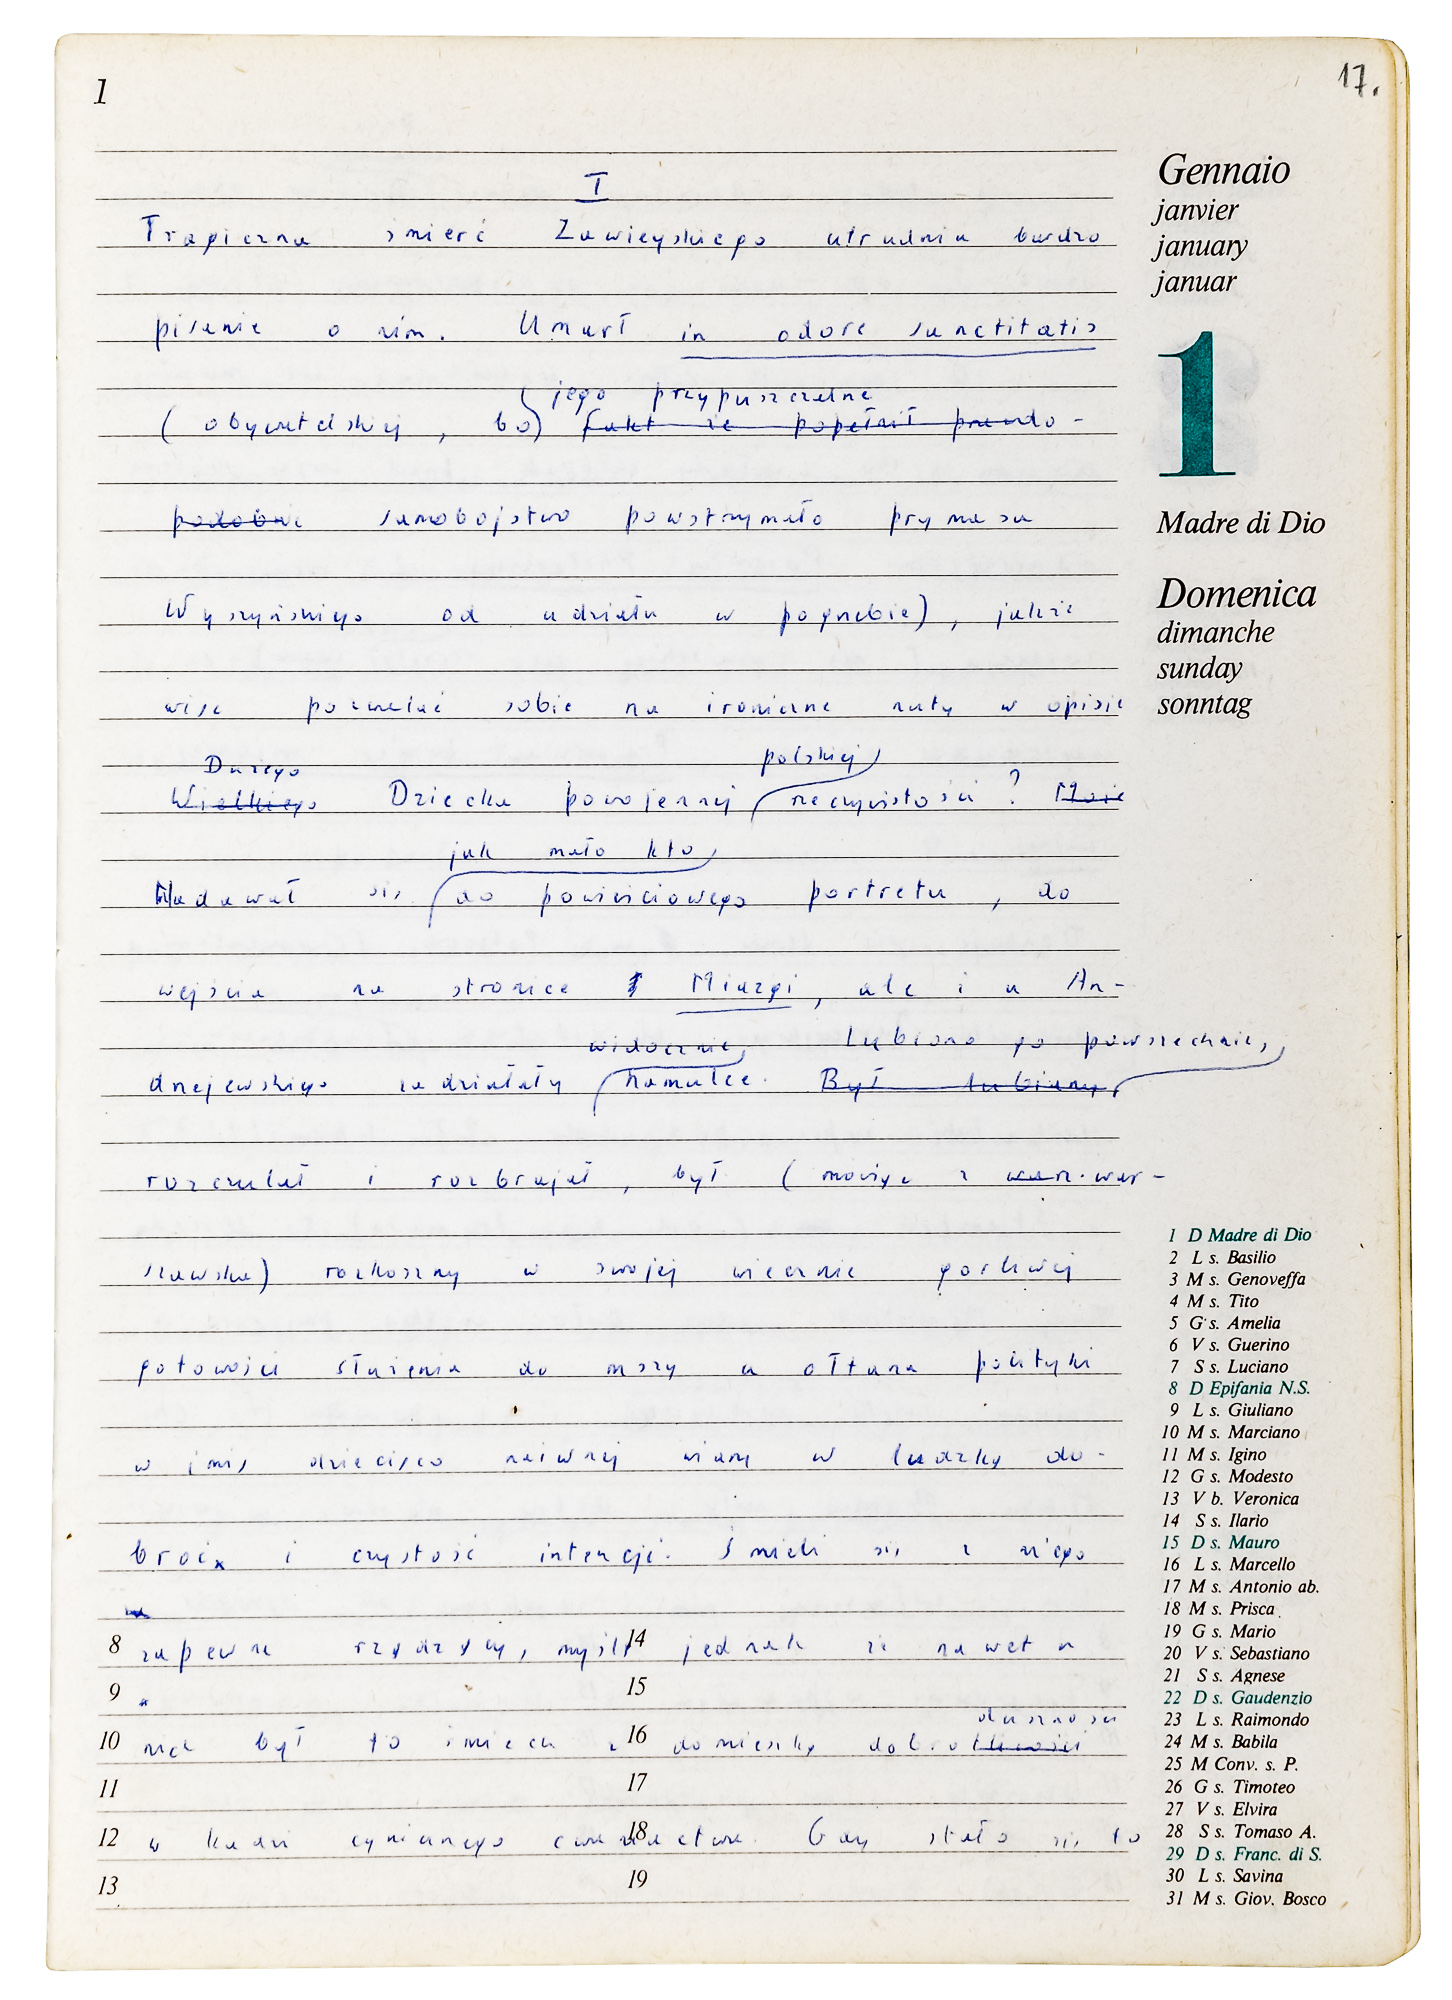 1
17.
I
Tragiczna śmierć Zawieyskiego utrudnia bardzo
pisanie o nim. Umarł in odore sanctitatis
jego przypuszczalne
(obywatelskiej, bo) fakt że popełnił prawdo-
podobnie samobójstwo powstrzymało prymasa
Wyszyńskiego od udziału w pogrzebie), jakże
więc pozwalać sobie na ironiczne nuty w opisie
Dużego
polskiej
Wielkiego Dziecka powojennej rzeczywistości? Może
jak mało kto
Nadawał się do powieściowego portretu, do
wejścia na stronice Miazgi, ale i u An-
widocznie
Lubiano go powszechnie,
drzejewskiego zadziałały hamulce. Był lubiany,
rozczulał i rozbrajał, był (mówiąc z war-
szawska) rozkoszny w swojej wiecznie gorliwej
gotowości służenia do mszy u ołtarza polityki
w imię dziecięco naiwnej wiary w ludzką do-
broć i czystość intencji. Śmieli się z niego
zapewne rządzący, myślę jednak że nawet u
duszności
nich był to śmiech z domieszką dobrotliwości
w kadzi cynicznego Gdy stało się to
Gennaio
janvier
january
januar
1
Madre di Dio
Domenica
dimanche
sunday
sonntag
1 D Madre di Dio
2 L s. Basilio
3 M s. Genoveffa
4 M s. Tito
5 G s. Amelia
6 V s. Guerino
7 S s. Luciano
8 D Epifania N.S.
9 L s. Giuliano
10 M s. Marciano
11 M s. Igino
12 G s. Modesto
13 V b. Veronica
14 S s. Ilario
15 D s. Mauro
16 L s. Marcello
17 M s. Antonio ab.
18 M s. Prisca
19 G s. Mario
20 V s. Sebastiano
21 S s. Agnese
22 D s. Gaudenzio
23 L s. Raimondo
24 M s. Babila
25 M Conv. s. P.
26 G s. Timoteo
27 V s. Elvira
28 S s. Tomaso A.
29 D s. Franc. di S.
30 L s. Savina
31 M s. Giov. Bosco
8 14
9 15
10 16
11 17
12 18
13 19